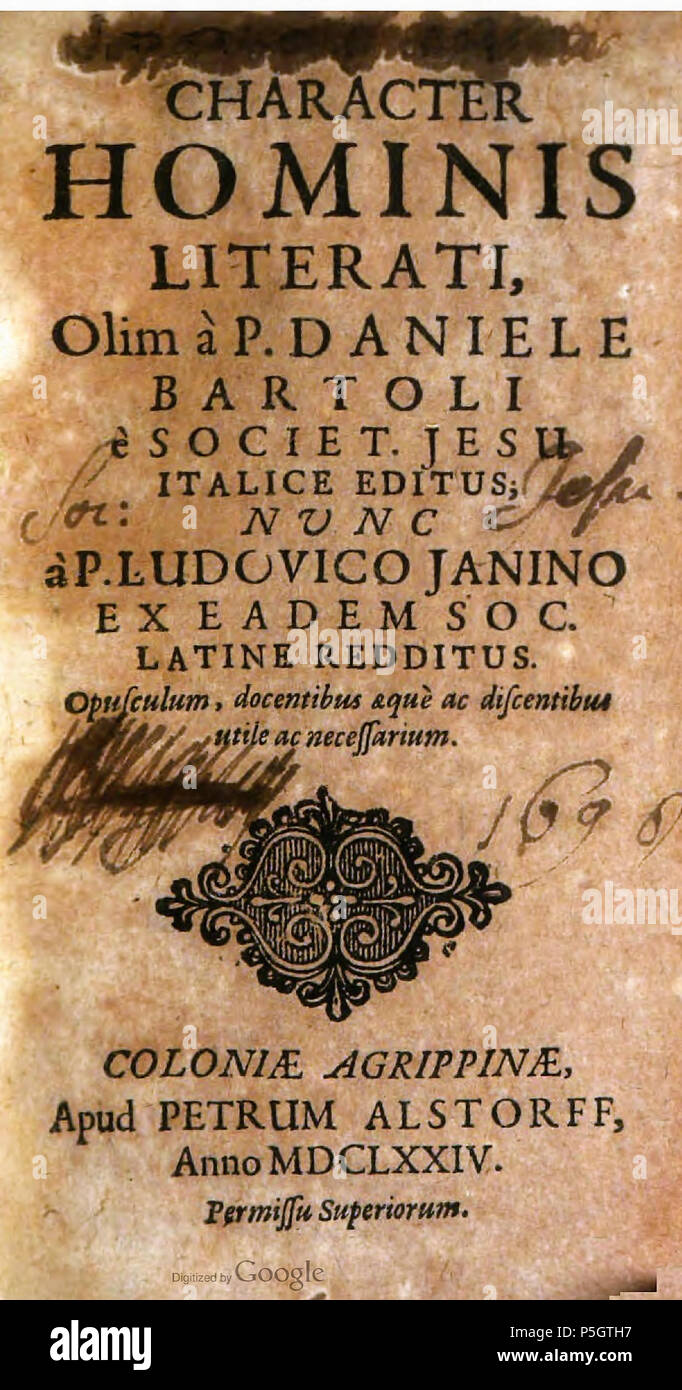 CHARACTER
HOMINIS
LITERATI,
Olim à P. DANIELE
BARTOLI
è SOCIET. JESU
ITALICE EDITUS;
Soc: Jesu.
NUNC
à P. LUDOVICO JANINO
EX EADEM SOC.
LATINE REDDITUS.
Opuſculum, docentibus æquè ac diſcentibus
utile ac neceſſarium.
COLONIÆ AGRIPPINÆ,
Apud PETRUM ALSTORFF,
Anno MDCLXXIV.
Permiſſu Superiorum.
Digitized by Google
alamy
Image ID: P5GTH7
www.alamy.com